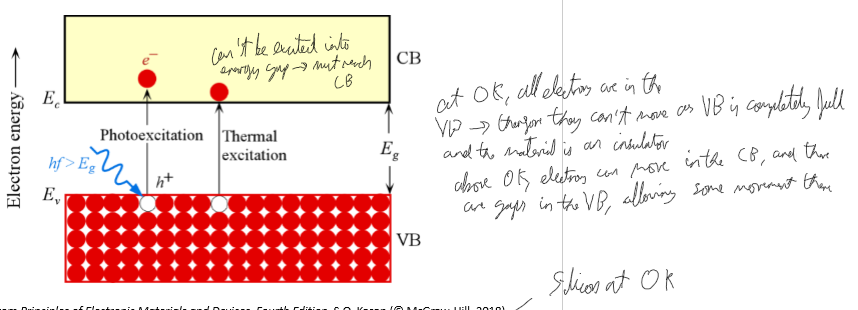 Electron energy
e⁻
can't be excited into
energy gap → must reach
CB
CB
E_c
Photoexcitation
Thermal
excitation
hf > E_g
h⁺
E_g
E_v
VB
at 0K, all electrons are in the
VB → therefore they can't move as VB is completely full
and the material is an insulator
above 0K, electrons can move in the CB, and there
are gaps in the VB, allowing some movement there
Silicon at 0K
Principles of Electronic Materials and Devices, Fourth Edition, S.O. Kasap (© McGraw-Hill, 2018)